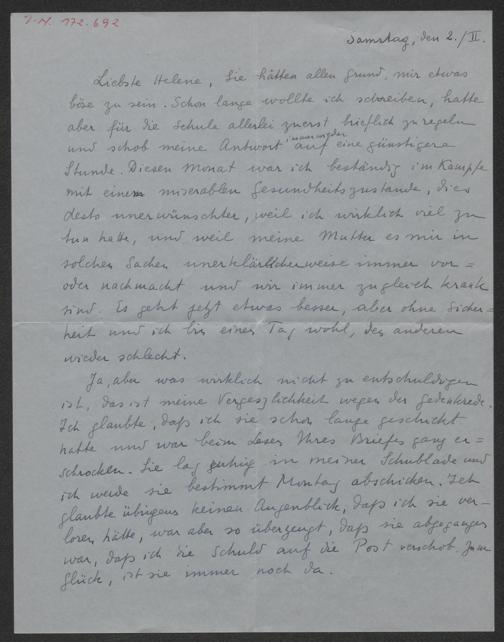 I.N. 172.692
Samstag, den 2./II.
Liebste Helene, Sie hätten allen Grund, mir etwas
böse zu sein. Schon lange wollte ich schreiben, hatte
aber für die Schule allerlei zuerst brieflich zu regeln
und schob meine Antwort immer wieder auf eine günstigere
Stunde. Diesen Monat war ich beständig im Kampfe
mit einem miserablen Gesundheitszustande, dies
desto unerwünschter, weil ich wirklich viel zu
tun hatte, und weil meine Mutter es mir in
solchen Sachen unerklärlicherweise immer vor=
oder nachmacht und wir immer zugleich krank
sind. Es geht jetzt etwas besser, aber ohne Sicher=
heit und ich bin einen Tag wohl, den anderen
wieder schlecht.
Ja, aber was wirklich nicht zu entschuldigen
ist, das ist meine Vergesslichkeit wegen der Gedenkrede.
Ich glaubte, daß ich sie schon lange geschickt
hatte und war beim Lesen Ihres Briefes ganz er=
schrocken. Sie lag ruhig in meiner Schublade und
ich werde sie bestimmt Montag abschicken. Ich
glaubte übrigens keinen Augenblick, daß ich sie ver=
loren hätte, war aber so überzeugt, daß sie abgegangen
war, daß ich die Schuld auf die Post verschob. Zum
Glück, ist sie immer noch da.